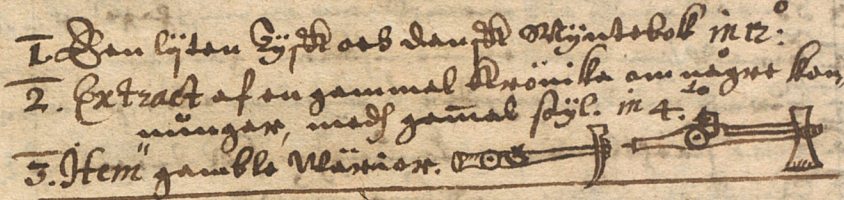 1. Een lijten Tysk ocs dansk Myntebok in 12°:
2. Extract af en gammal Krönika om någre Kon,
nungar, medh gam̄al styl. in 4.to
3. Item gamble Wärior.